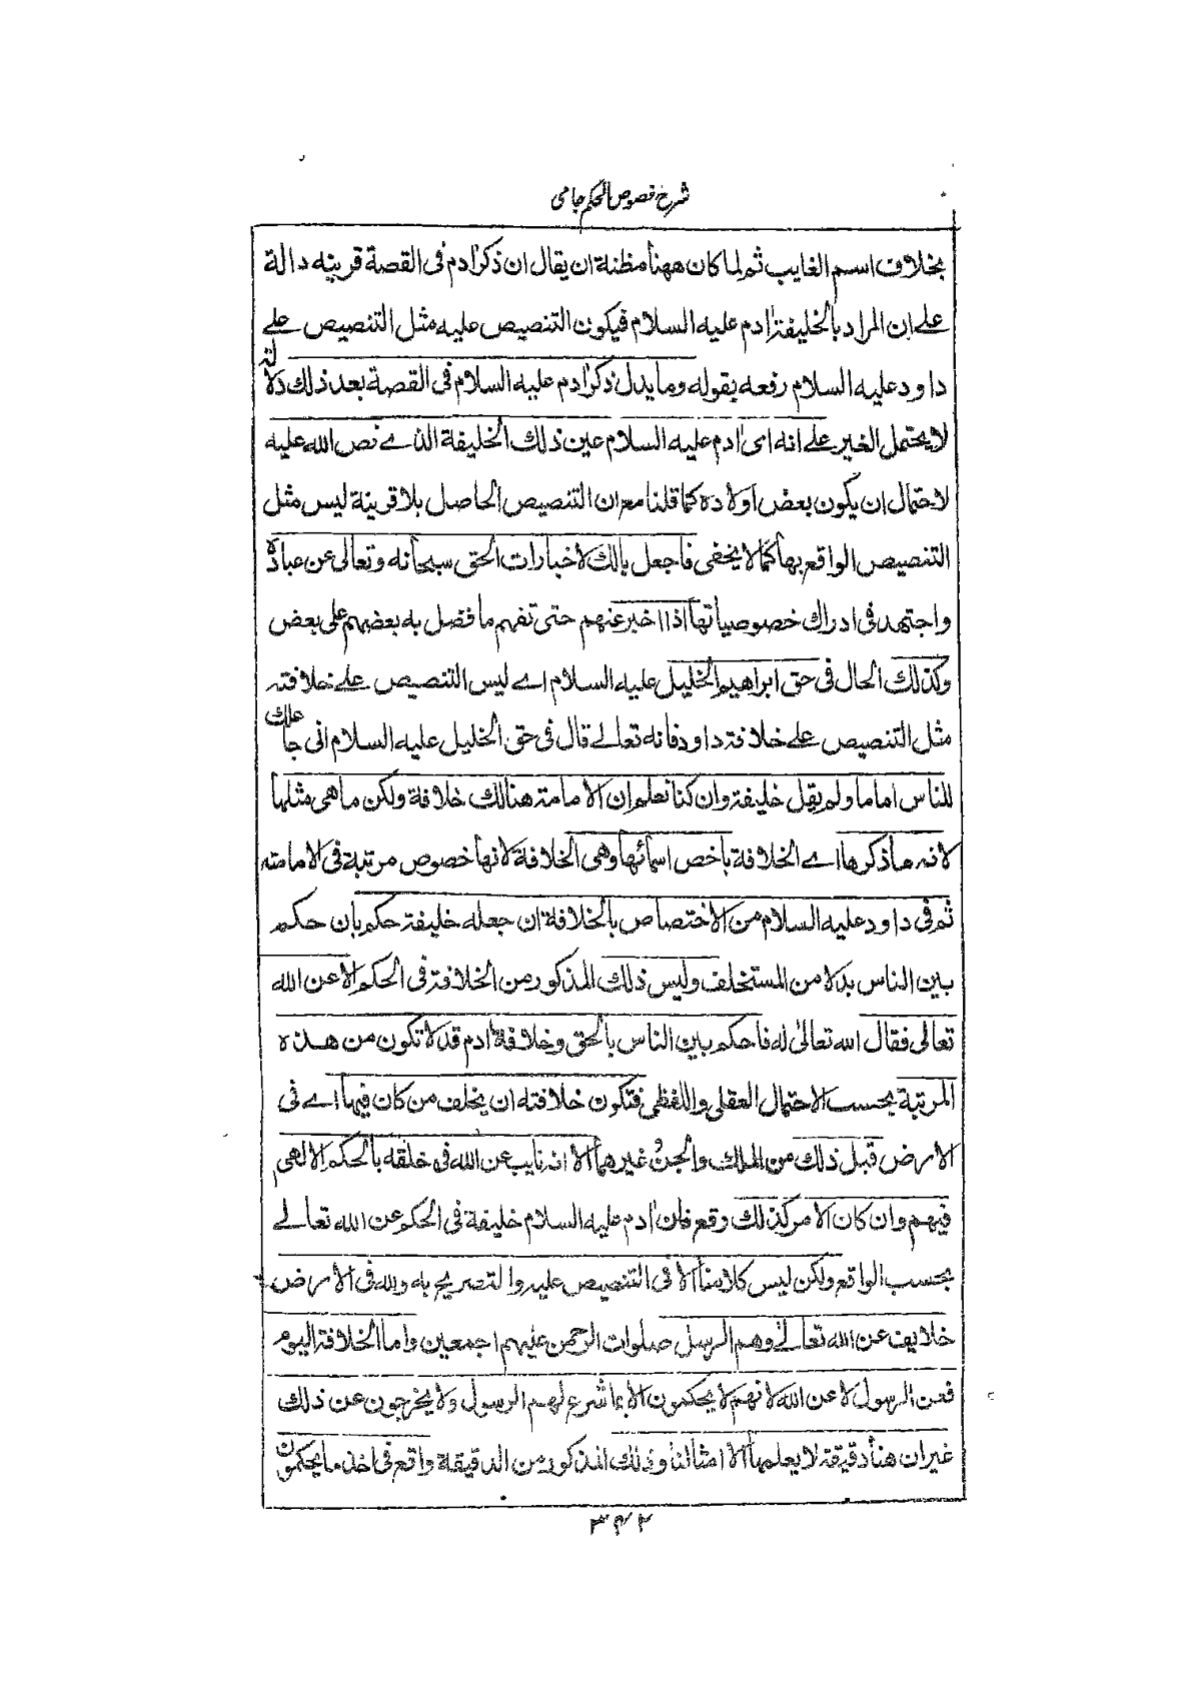 شرح فصوص الحكم جامی
بخلاف اسم الغايب ثم لما كان ههنا مظنة ان يقال ان ذكر ادم فى القصة قرينه دالة
على ان المراد بالخليفة ادم عليه السلام فيكون التنصيص عليه مثل التنصيص على
داود عليه السلام رفعه بقوله وما يدل ذكر ادم عليه السلام فى القصة بعد ذلك دلالة
لا يحتمل الغير على انه اى ادم عليه السلام عين ذلك الخليفة الذے نص الله عليه
لاحتمال ان يكون بعض اولاده كما قلنا مع ان التنصيص الحاصل بلا قرينة ليس مثل
التنصيص الواقع بها كما لا يخفى فاجعل بالك لاخبارات الحق سبحانه وتعالى عن عباده
واجتهد فى ادراك خصوصياتها اذا اخبر عنهم حتى تفهم ما فضل به بعضهم على بعض
وكذلك الحال فى حق ابراهيم الخليل عليه السلام اے ليس التنصيص على خلافته
مثل التنصيص على خلافته داود فانه تعالے قال فى حق الخليل عليه السلام انى جاعلك
للناس اماما ولم يقل خليفة وان كنا نعلم ان الامامة هنالك خلافة ولكن ما هى مثلها
لانه ما ذكرها اے الخلافة باخص اسمائها وهى الخلافة لانها خصوص مرتبة فى الامامته
ثم فى داود عليه السلام من الاختصاص بالخلافة ان جعله خليفة حكم بان حكم
بين الناس بدلا من المستخلف وليس ذلك المذكور من الخلافة فى الحكم الا عن الله
تعالى فقال الله تعالىٰ له فاحكم بين الناس بالحق وخلافة ادم قد لا تكون من هذه
المرتبة بحسب الاحتمال العقلى واللفظى فتكون خلافته ان يخلف من كان فيها اے فى
الارض قبل ذلك من الملك والجن وغيرهما لا انه نايب عن الله فى خلقه بالحكم الالهى
فيهم وان كان الامر كذلك وقع فان ادم عليه السلام خليفة فى الحكم عن الله تعالے
بحسب الواقع ولكن ليس كلامنا الا فى التنصيص عليه والتصريح به ولله فى الارض
خلايف عن الله تعالےٰ وهم الرسل صلوات الرحمن عليهم اجمعين واما الخلافة اليوم
فعن الرسول لا عن الله لانهم لا يحكمون الا بما شرع لهم الرسول ولا يخرجون عن ذلك
غير ان هنا دقيقة لا يعلمها الا امثالنا وذلك المذكور من الدقيقة واقع فى اخذ ما يحكمون
۳۴۲